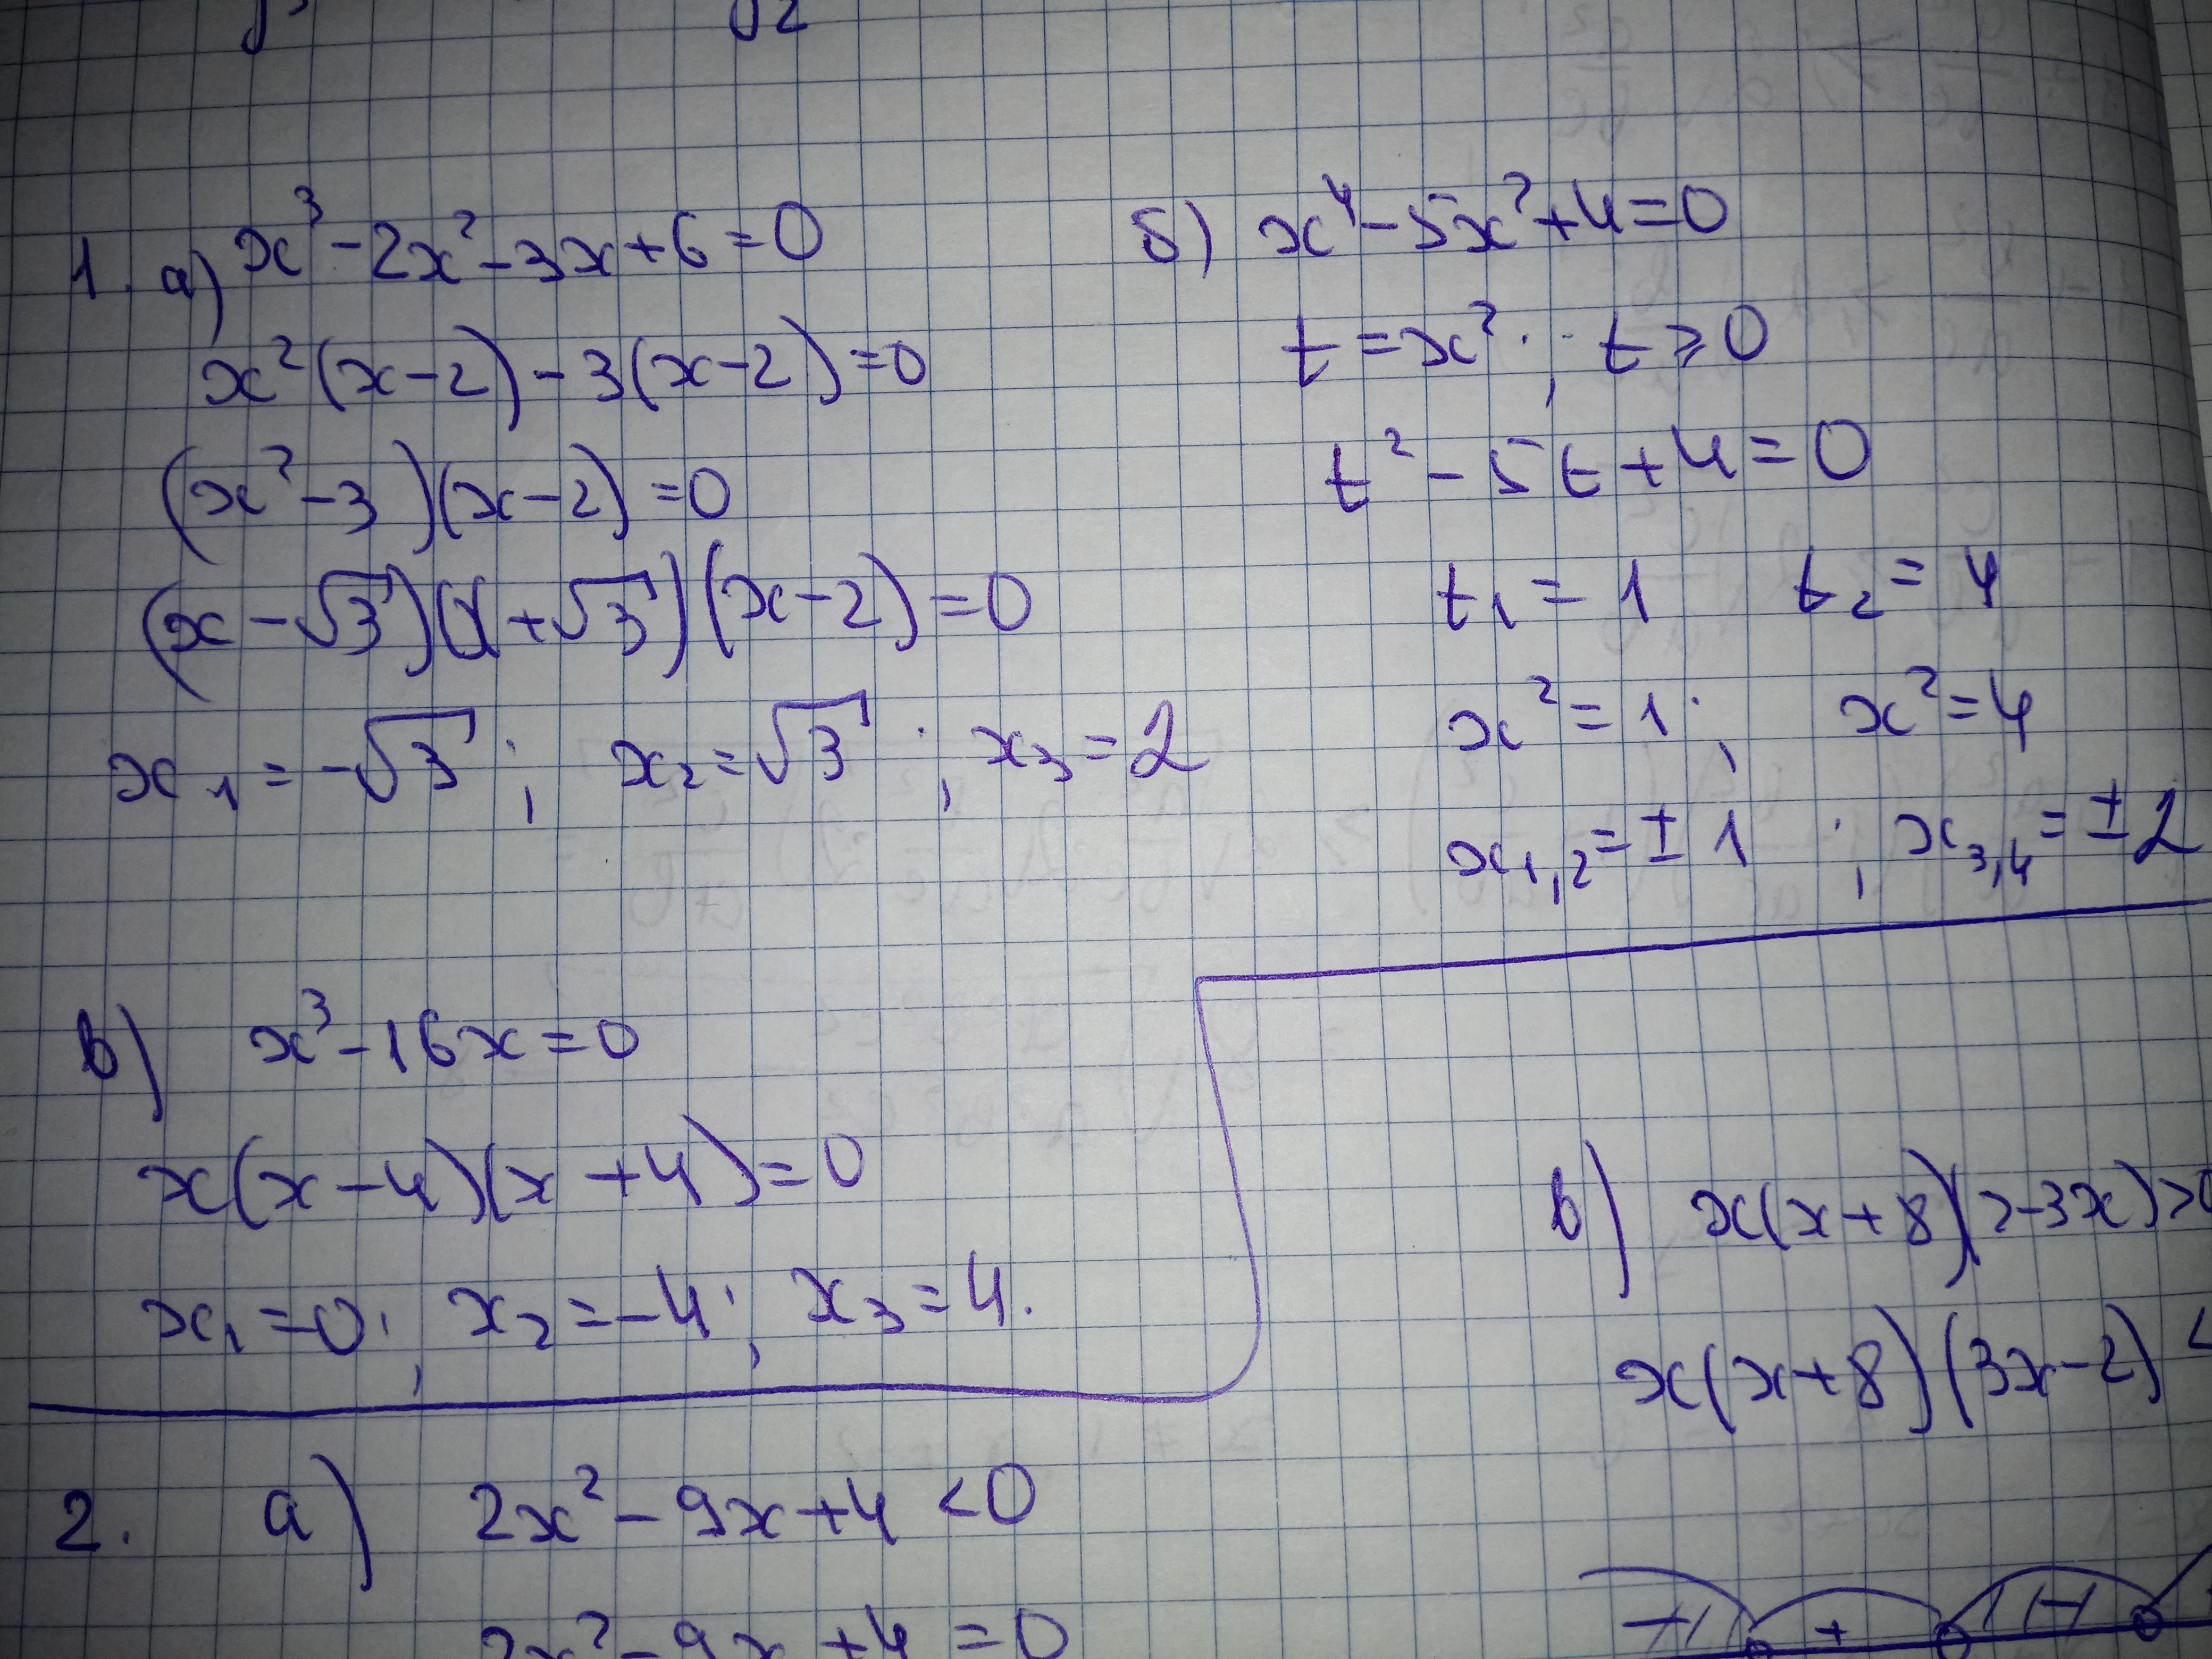 √2
1. а) x³-2x²-3x+6=0
x²(x-2)-3(x-2)=0
(x²-3)(x-2)=0
(x-√3)(x+√3)(x-2)=0
x₁=-√3; x₂=√3; x₃=2
б) x⁴-5x²+4=0
t=x²; t⩾0
t²-5t+4=0
t₁=1 t₂=4
x²=1; x²=4
x₁,₂=±1; x₃,₄=±2
в) x³-16x=0
x(x-4)(x+4)=0
x₁=0; x₂=-4; x₃=4.
2. а) 2x²-9x+4<0
2x²-9x+4=0
в) x(x+8)(2-3x)>0
x(x+8)(3x-2)<
- + -